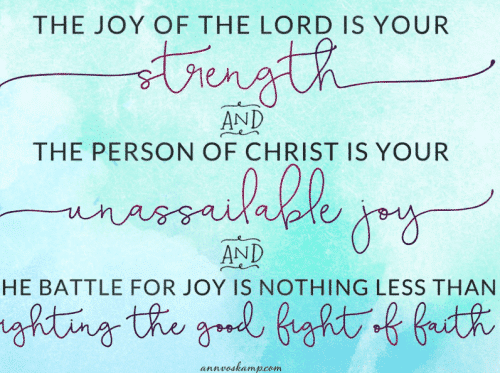 THE JOY OF THE LORD IS YOUR
strength
AND
THE PERSON OF CHRIST IS YOUR
unassailable joy
AND
HE BATTLE FOR JOY IS NOTHING LESS THAN
ighting the good fight of faith
annvoskamp.com